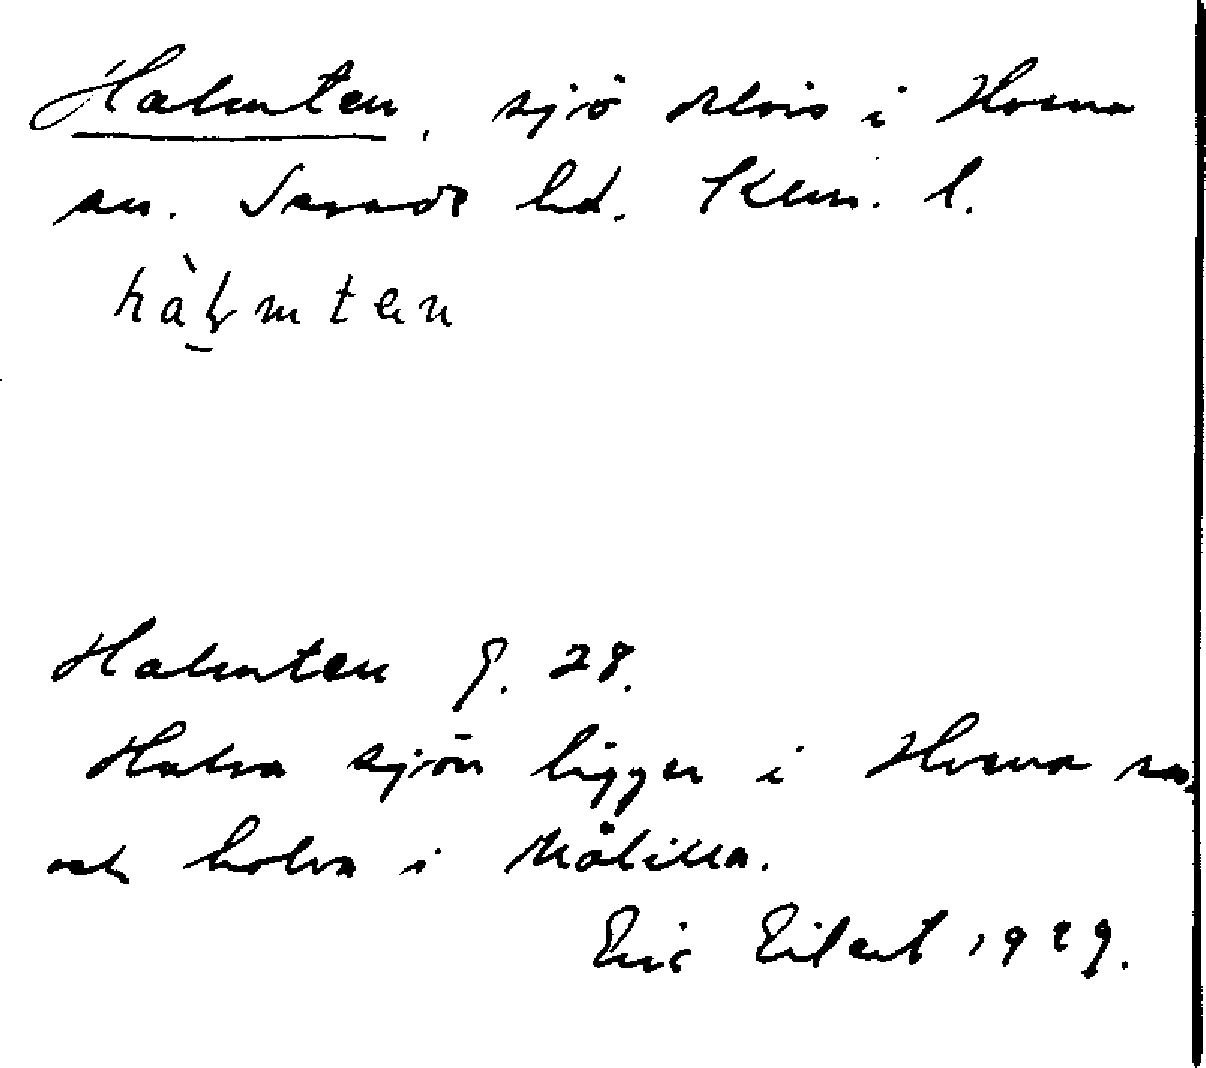 Halmten, sjö delvis i Hvena
sn. Sevede hd. Kalm. l.
hàlmten
Halmten J. 28.
Halva sjön ligger i Hvena sn.
och halva i Målilla.
Eric Eilert 1929.